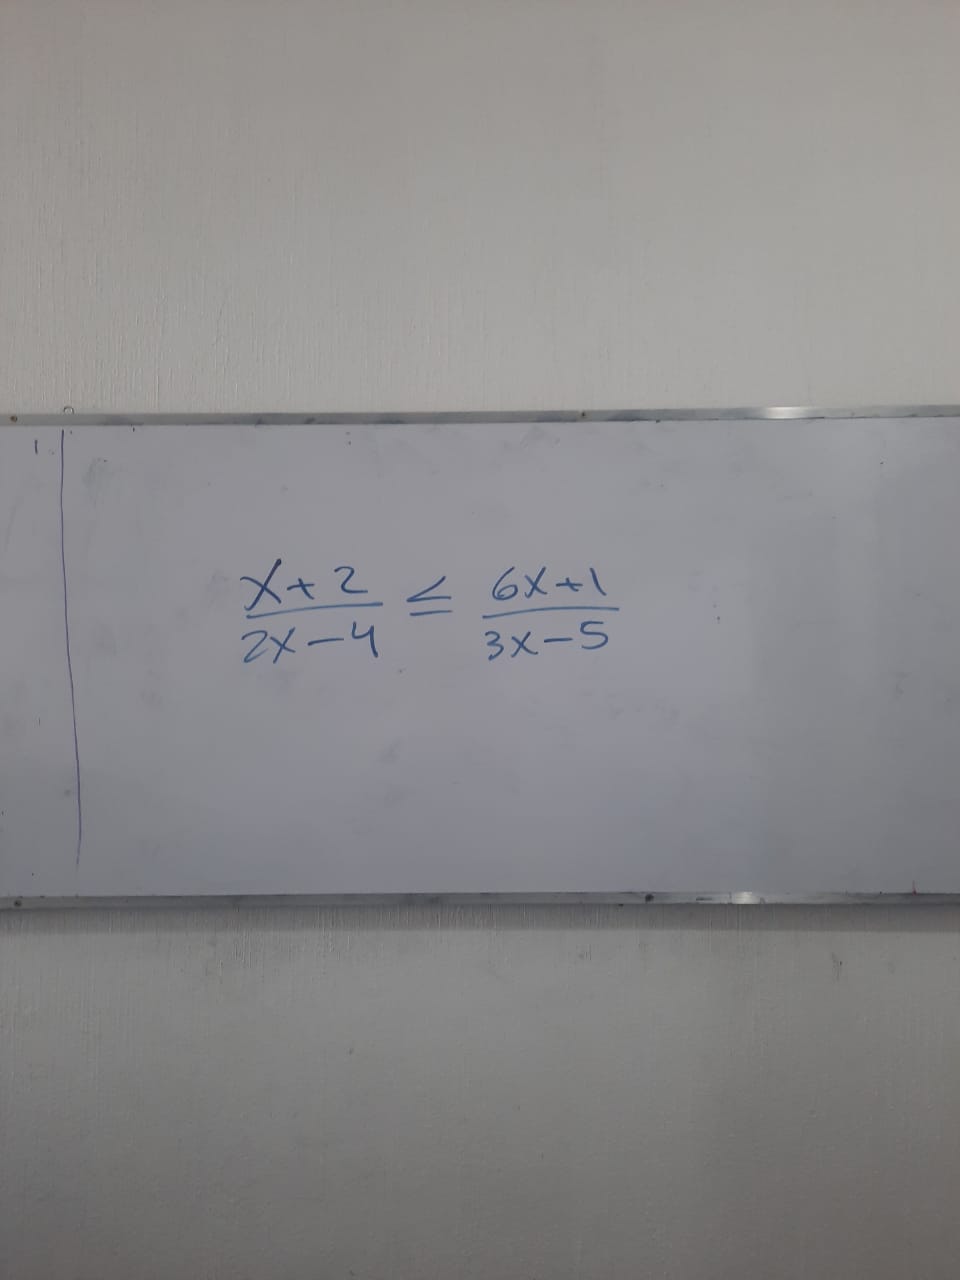 1.
x+2/2x-4 ≤ 6x+1/3x-5